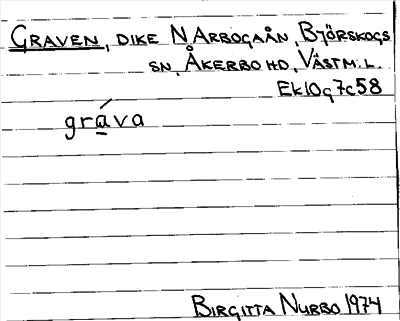 GRAVEN, DIKE N ARBOGAÅN, BJÖRSKOGS
SN, ÅKERBO HD, VÄSTM. L.
Ek10g7c58
gráva
BIRGITTA NURBO 1974